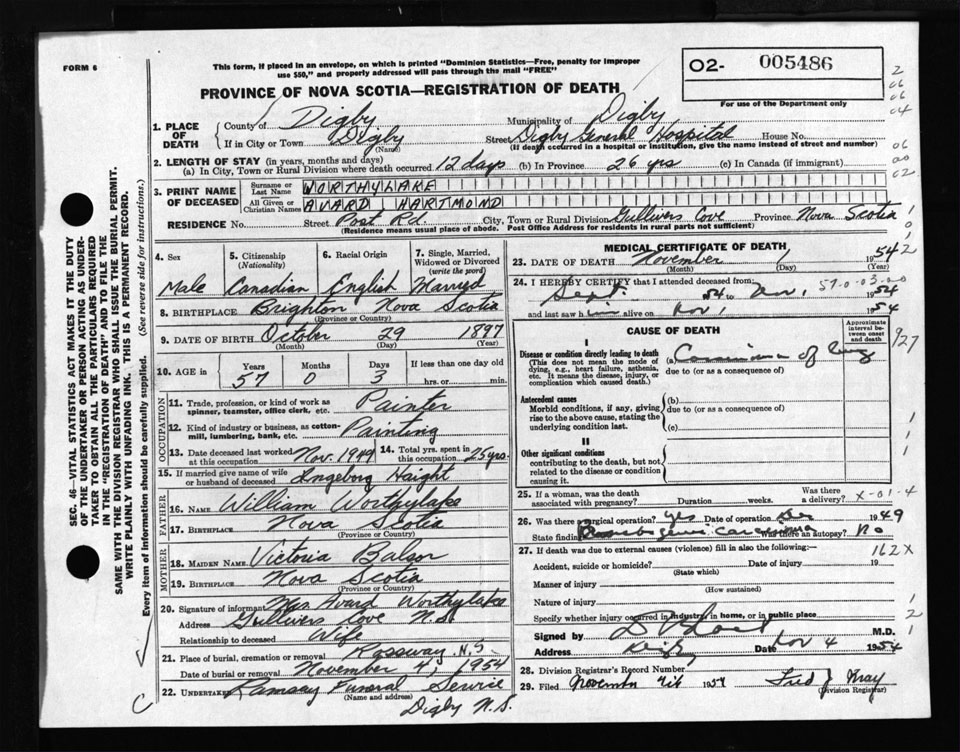 FORM 6
This form, if placed in an envelope, on which is printed "Dominion Statistics—Free, penalty for improper
use $50," and properly addressed will pass through the mail "FREE"
PROVINCE OF NOVA SCOTIA—REGISTRATION OF DEATH
O2- 005486
For use of the Department only
2
06
06
04
06
00
02
1. PLACE OF DEATH
County of Digby Municipality of Digby
If in City or Town Digby Street Digby General Hospital House No.
(Name) (If death occurred in a hospital or institution, give the name instead of street and number)
2. LENGTH OF STAY (in years, months and days)
(a) In City, Town or Rural Division where death occurred 12 days (b) In Province 26 yrs (c) In Canada (if immigrant)
3. PRINT NAME OF DECEASED
Surname or Last Name WORTHYLAKE
All Given or Christian Names AVARD HARTMOND
RESIDENCE No. Street Post Rd. City, Town or Rural Division Gullivers Cove Province Nova Scotia
(Residence means usual place of abode. Post Office Address for residents in rural parts not sufficient)
SEC. 46—VITAL STATISTICS ACT MAKES IT THE DUTY
OF THE UNDERTAKER OR PERSON ACTING AS UNDER-
TAKER TO OBTAIN ALL THE PARTICULARS REQUIRED
IN THE "REGISTRATION OF DEATH" AND TO FILE THE
SAME WITH THE DIVISION REGISTRAR WHO SHALL ISSUE THE BURIAL PERMIT.
WRITE PLAINLY WITH UNFADING INK. THIS IS A PERMANENT RECORD.
Every item of information should be carefully supplied. (See reverse side for instructions.)
4. Sex 5. Citizenship (Nationality) 6. Racial Origin 7. Single, Married, Widowed or Divorced (write the word)
Male Canadian English Married
8. BIRTHPLACE Brighton Nova Scotia
(Province or Country)
9. DATE OF BIRTH October 29 1897
(Month) (Day) (Year)
10. AGE in Years Months Days If less than one day old
57 0 3 hrs. or min.
OCCUPATION
11. Trade, profession, or kind of work as
spinner, teamster, office clerk, etc. Painter
12. Kind of industry or business, as cotton-
mill, lumbering, bank, etc. Painting
13. Date deceased last worked at this occupation Nov. 1949 14. Total yrs. spent in this occupation 25 yrs.
15. If married give name of wife
or husband of deceased Ingeborg Haight
FATHER
16. Name William Worthylake
17. Birthplace Nova Scotia
(Province or Country)
MOTHER
18. Maiden Name Victoria
19. Birthplace Nova Scotia
(Province or Country)
20. Signature of informant Mrs Avard Worthylake
Address Gullivers Cove N.S.
Relationship to deceased Wife
21. Place of burial, cremation or removal Rossway N.S.
Date of burial or removal November 4, 1954
22. Undertaker Ramsay Funeral Service
(Name and address)
Digby N.S.
C
MEDICAL CERTIFICATE OF DEATH
23. DATE OF DEATH November 1 1954
(Month) (Day) (Year)
24. I HEREBY CERTIFY that I attended deceased from:
Sept. 1954 to Nov. 1 1954
57-0-03-00
and last saw him alive on Nov 1 1954
CAUSE OF DEATH
Approximate interval between onset and death
I
Disease or condition directly leading to death
(This does not mean the mode of
dying, e.g., heart failure, asthenia,
etc. It means the disease, injury, or
complication which caused death.)
(a) Carcinoma of lung
due to (or as a consequence of)
Antecedent causes
Morbid conditions, if any, giving
rise to the above cause, stating the
underlying condition last.
(b)
due to (or as a consequence of)
(c)
II
Other significant conditions
contributing to the death, but not
related to the disease or condition
causing it.
25. If a woman, was the death
associated with pregnancy? Duration weeks. Was there a delivery?
X-01-4
26. Was there surgical operation? yes Date of operation Dec 1949
State findings Bronchogenic carcinoma Was there an autopsy? No
27. If death was due to external causes (violence) fill in also the following:—
162X
Accident, suicide or homicide? Date of injury 19
(State which)
Manner of injury
(How sustained)
Nature of injury
Specify whether injury occurred in industry, in home, or in public place
Signed by M.D.
Address Digby Date Nov 4 1954
28. Division Registrar's Record Number
29. Filed November 4th 1954 Fred J May
(Division Registrar)